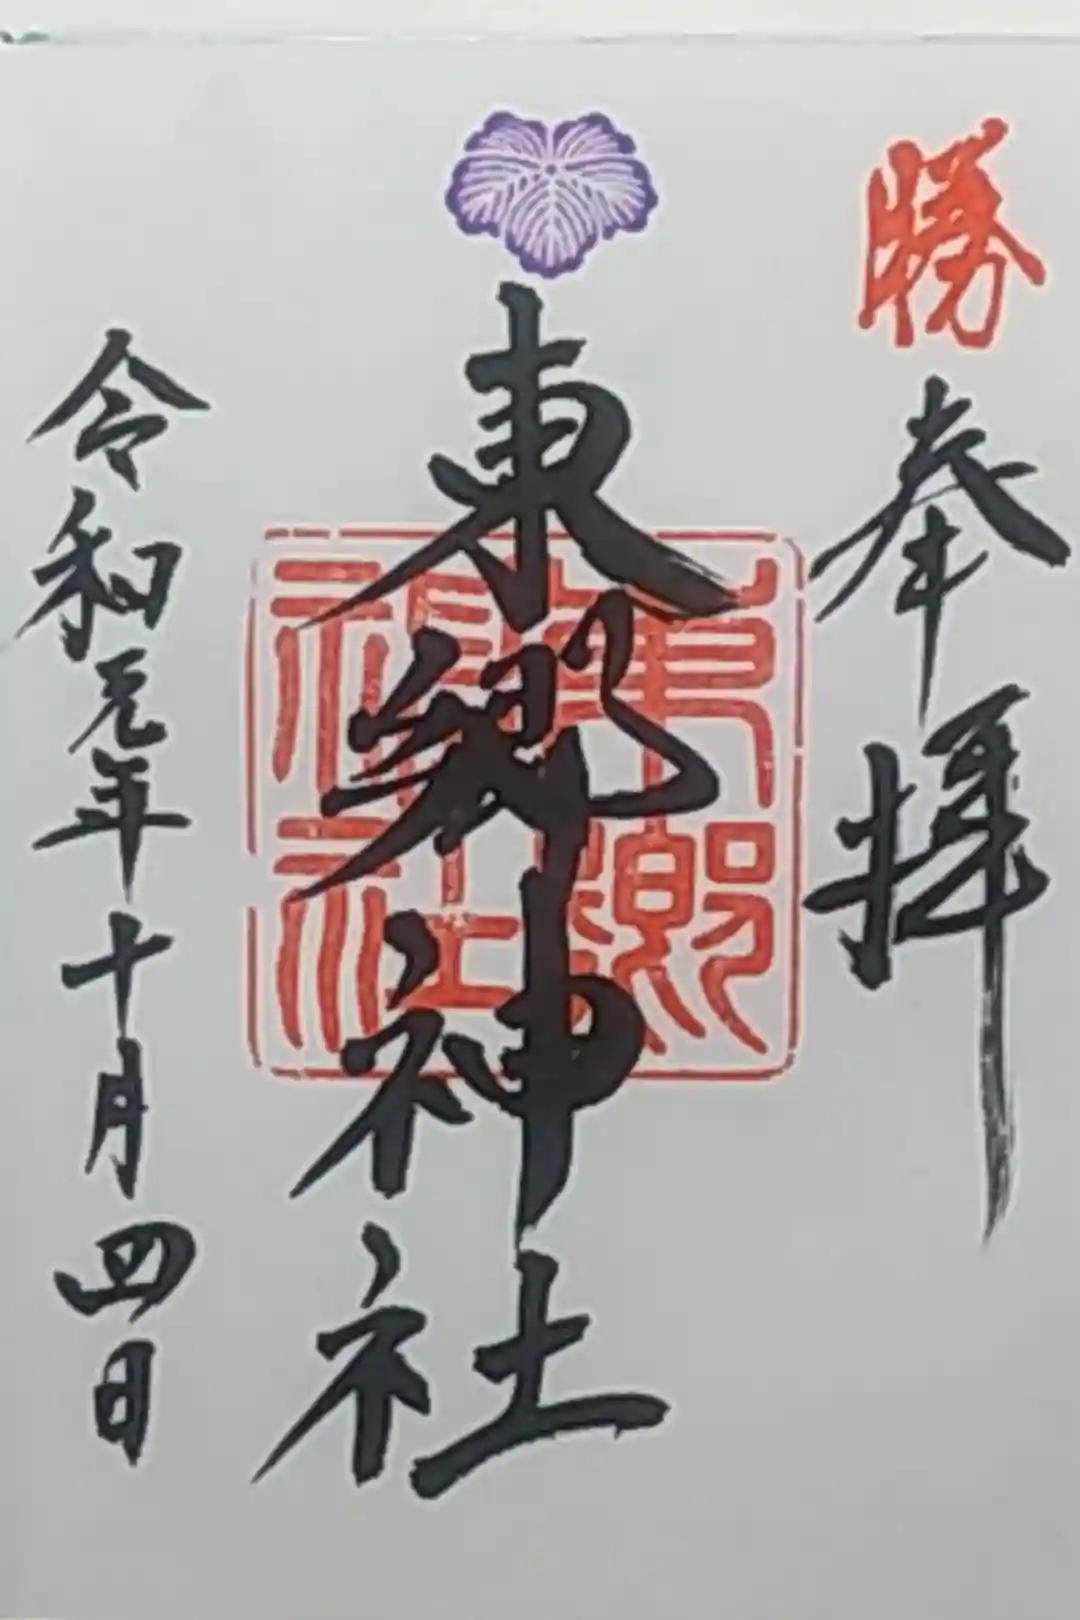 勝
奉拝
東郷神社
東郷神社
令和元年十月四日